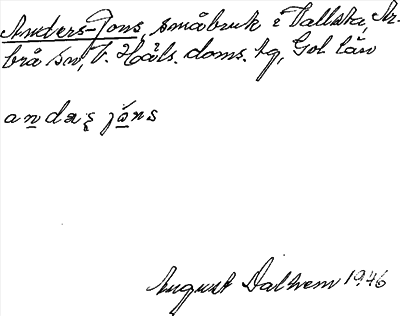 Anders-Jons, småbruk i Vallsta, Ar-
brå sn, V. Häls. doms. tg, Gäl län
andaʂ jåns
August Dalhem 1946